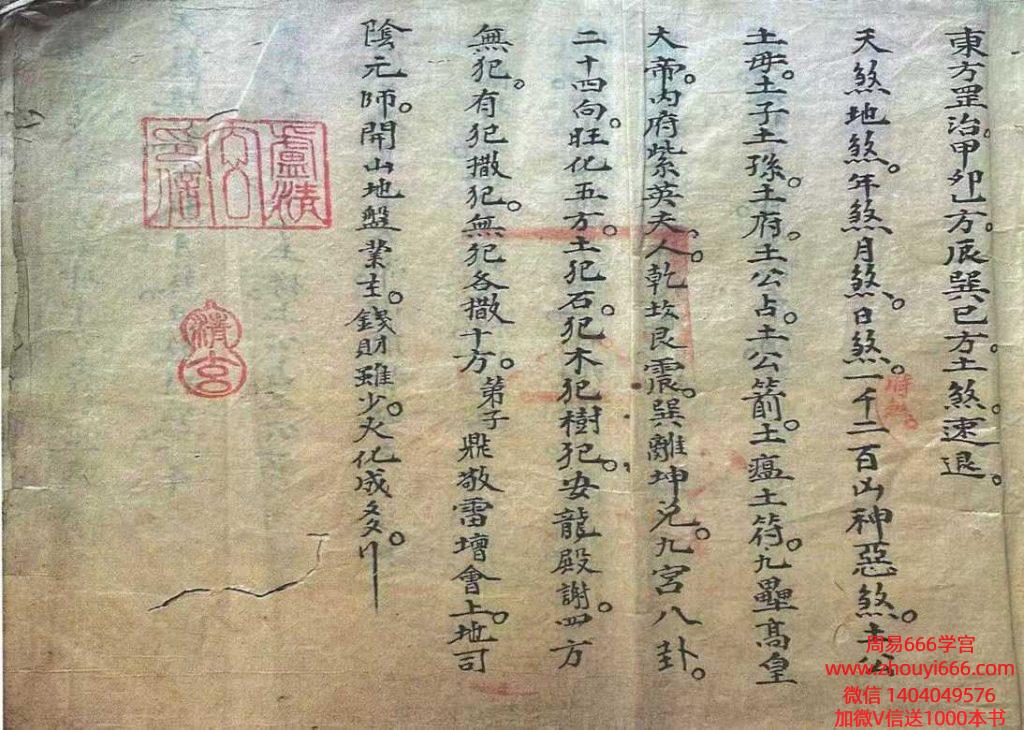 東方罡治。甲卯方。辰巽巳方。土煞速退。
天煞地煞。年煞月煞。日煞。一千二百凶神惡煞。土公
土母。土子土孫。土府。土公占。土公箭。土瘟土符。九壘高皇
大帝。內府紫英夫人。乾坎艮震。巽離坤兌。九宮八卦。
二十四向。旺化五方。土犯石。犯木犯樹犯。安龍殿謝。四方
無犯。有犯撒犯。無犯各撒十方。弟子鼎敬雷壇會上。地司
陰元師。開山地盤業主。錢財雖少。火化成多。
盧清
印信
清玄
周易666学宫
www.zhouyi666.com
微信 1404049576
加微V信送1000本书